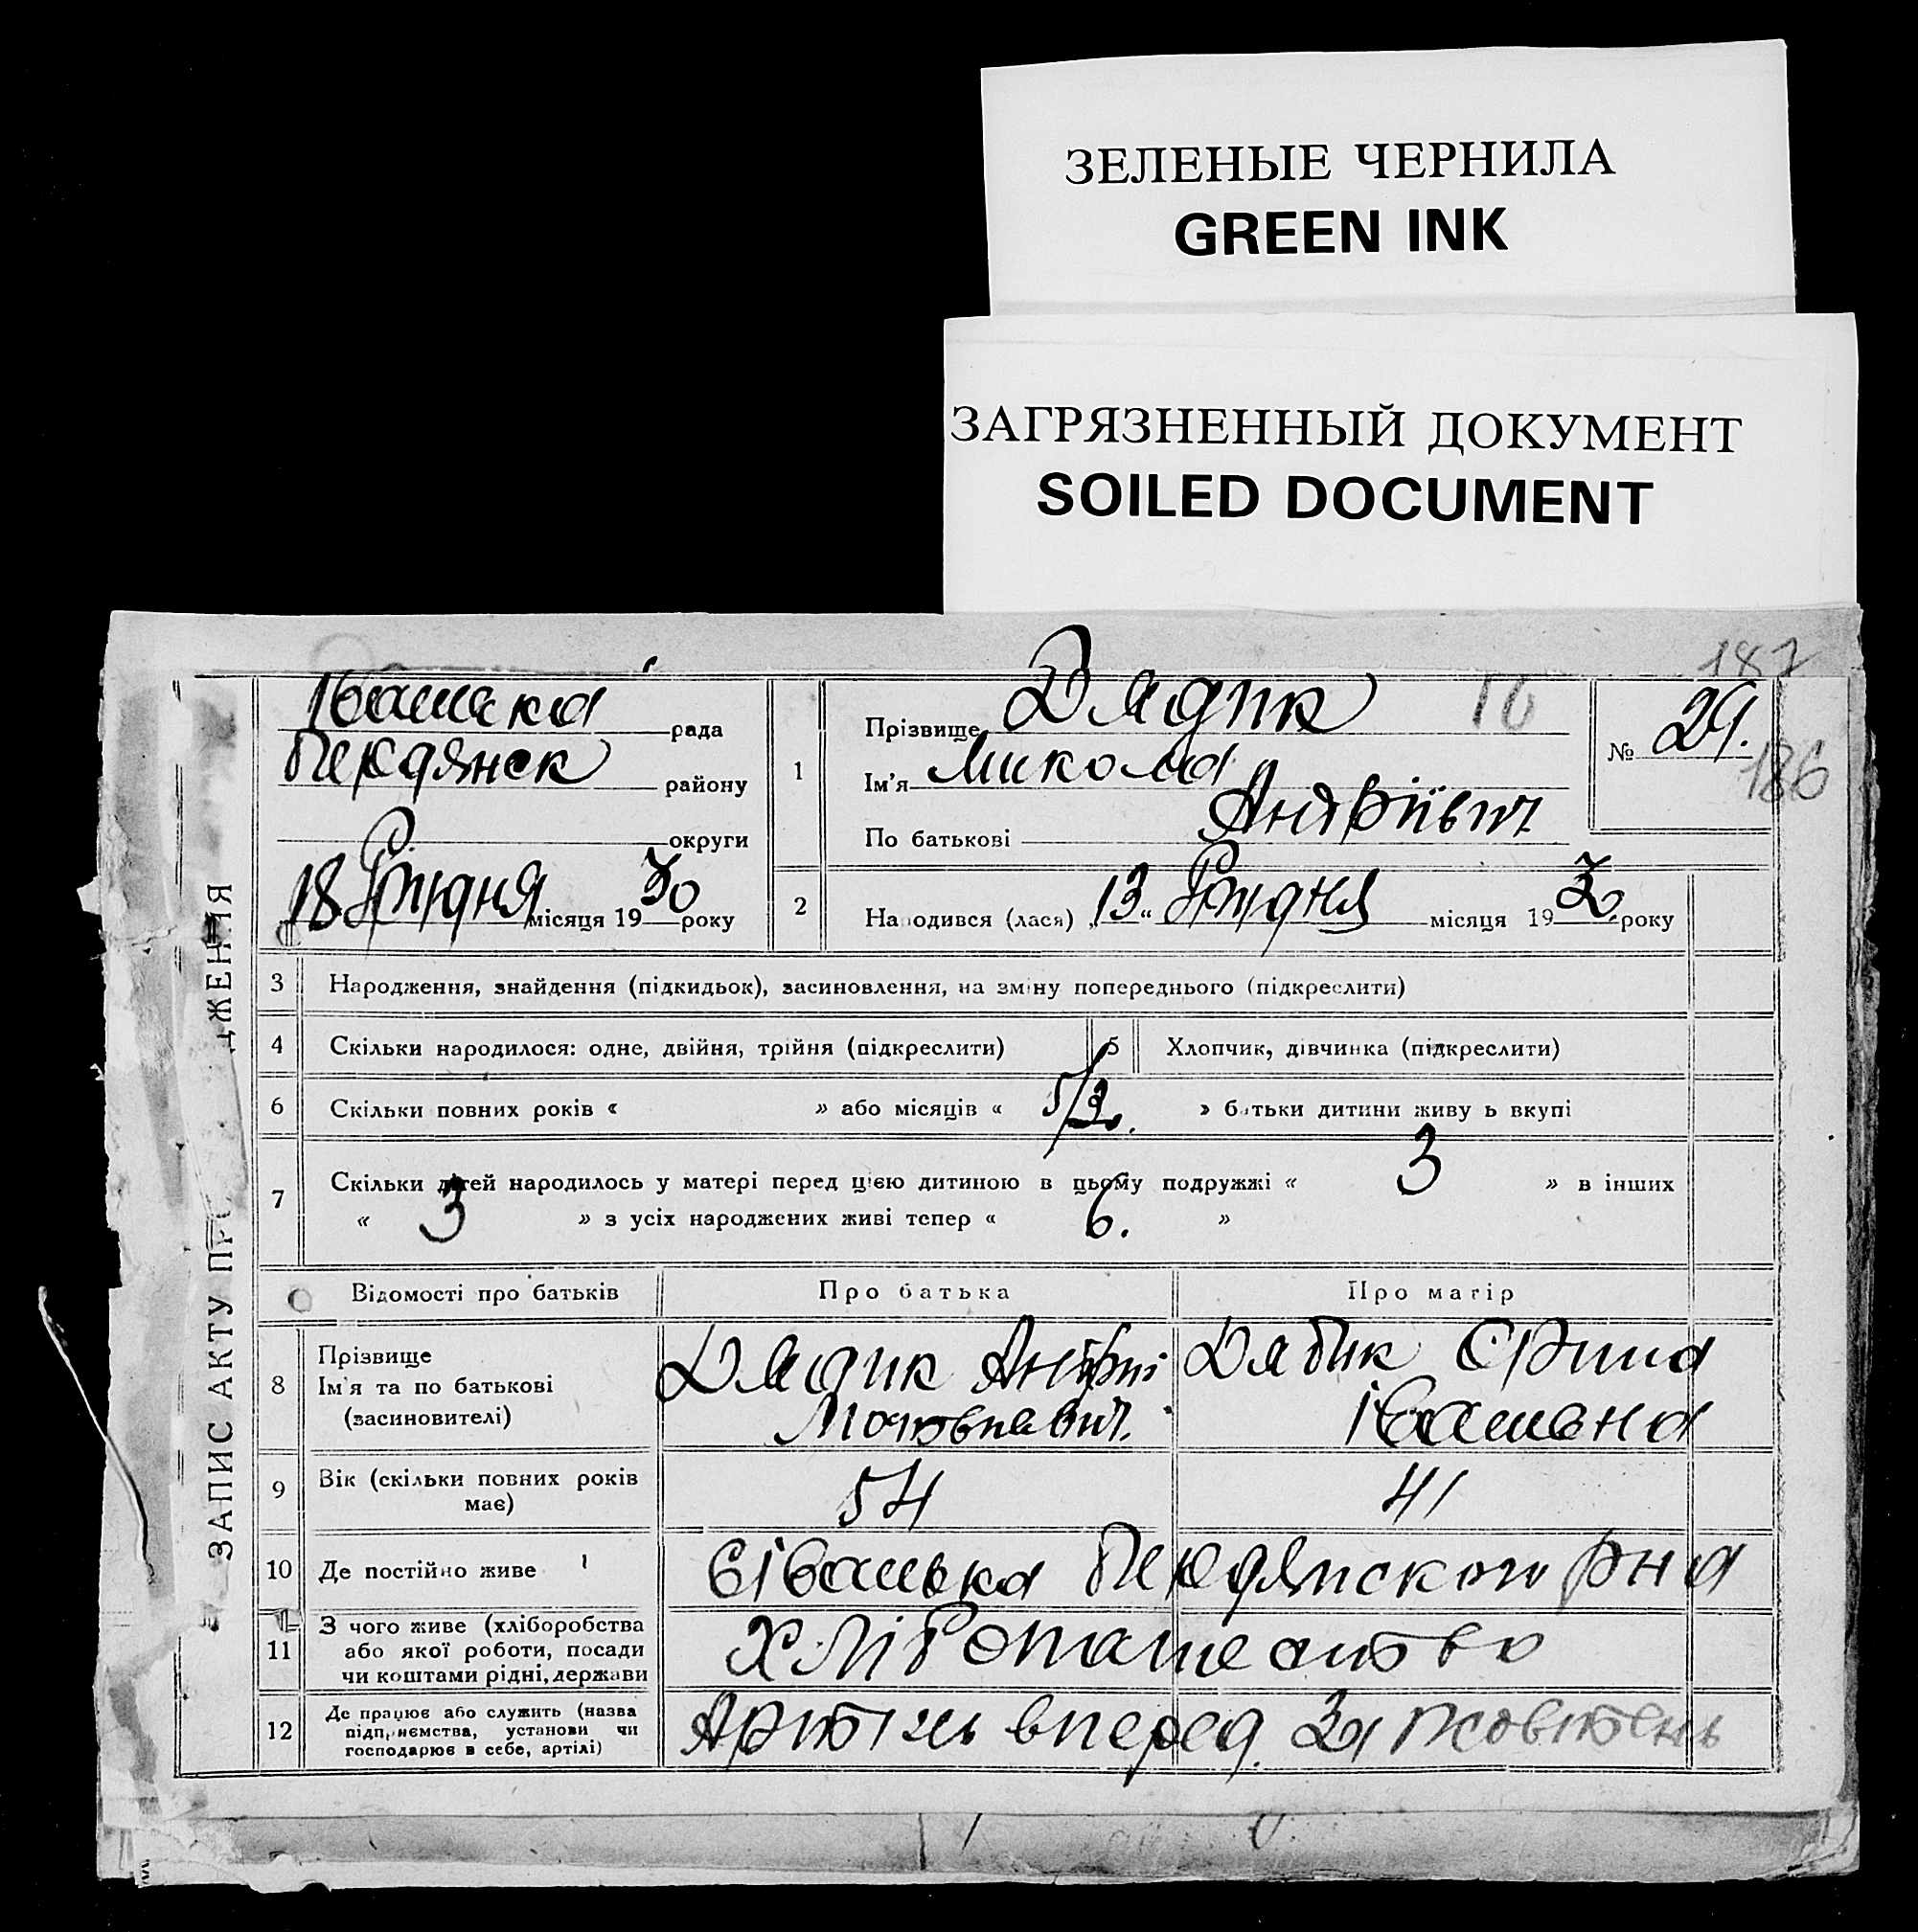 ЗЕЛЕНЫЕ ЧЕРНИЛА
GREEN INK
ЗАГРЯЗНЕННЫЙ ДОКУМЕНТ
SOILED DOCUMENT
187
186
ЗАПИС АКТУ ПРО ДЖЕННЯ
рада
району
округи
18 Грудня місяця 1930 року
1
Прізвище Дядик 16
Ім'я Микола
По батькові Андрієвич
№ 29.
2
Народився (лася) „13" Грудня місяця 1930 року
3 Народження, знайдення (підкидьок), засиновлення, на зміну попереднього (підкреслити)
4 Скільки народилося: одне, двійня, трійня (підкреслити)
5 Хлопчик, дівчинка (підкреслити)
6 Скільки повних років « » або місяців « » батьки дитини живуть вкупі
7 Скільки дітей народилось у матері перед цією дитиною в цьому подружжі « 3 » в інших
« 3 » з усіх народжених живі тепер « 6. »
Відомості про батьків Про батька Про матір
8 Прізвище
Ім'я та по батькові
(засиновителі)
Дядик Андрій
Дядик
9 Вік (скільки повних років
має)
54
41
10 Де постійно живе
11 З чого живе (хліборобства
або якої роботи, посади
чи коштами рідні, держави
Хлібопашество
12 Де працює або служить (назва
підприємства, установи чи
господарює в себе, артілі)
Артіль вперед За Жовтень